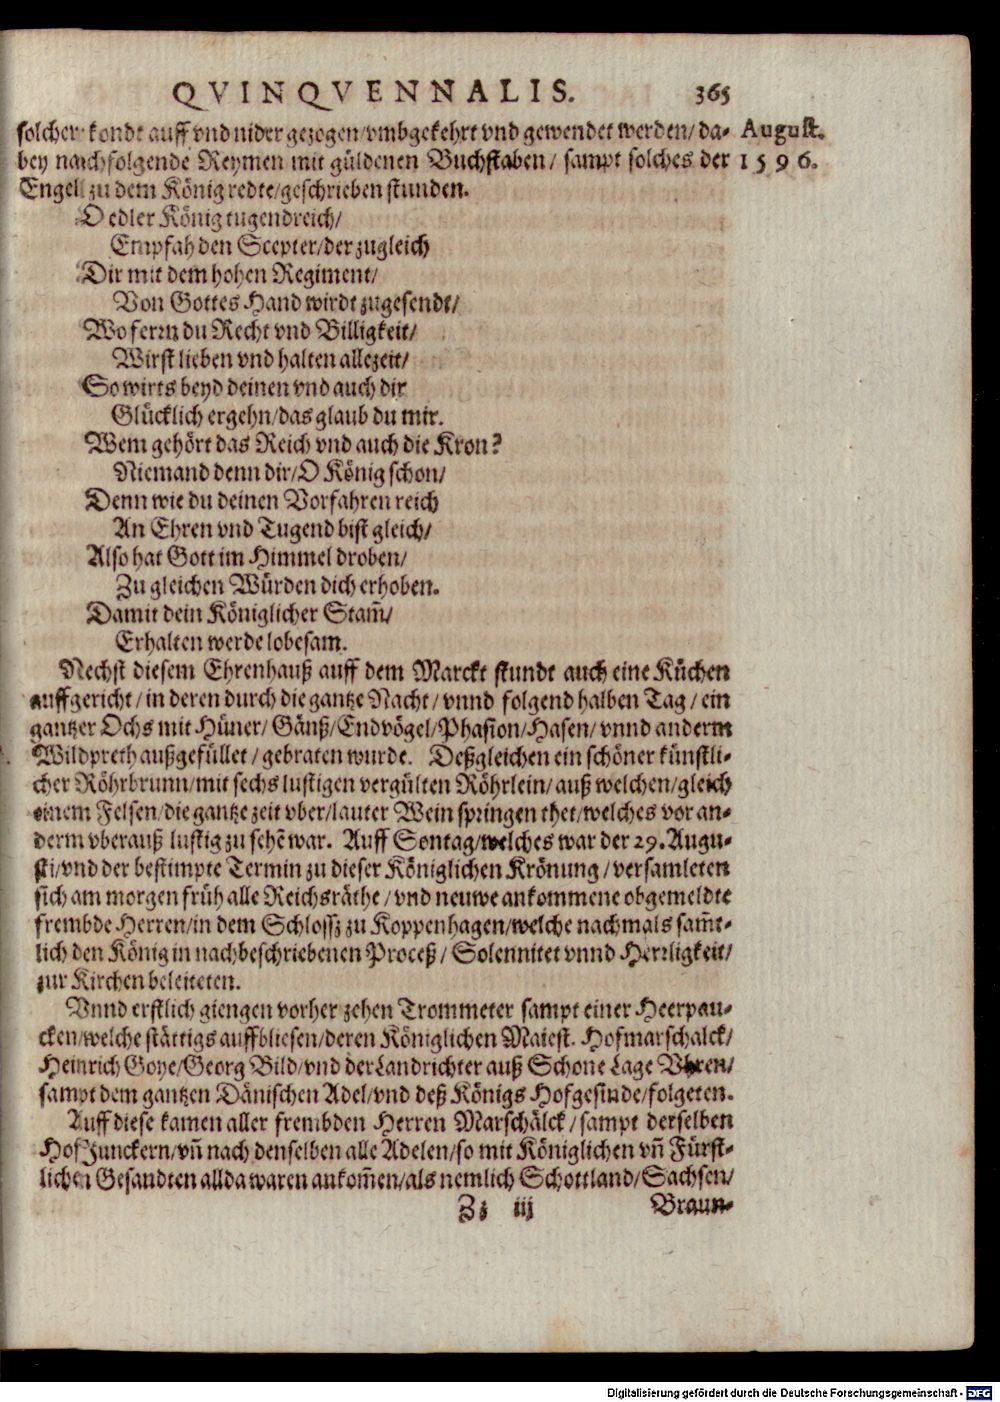 QVINQVENNALIS. 365
solcher kondt auff vnd nider gezogen/vmbgekehrt vnd gewendet werden/da- August.
bey nachfolgende Reymen mit güldenen Buchstaben/ sampt solches der 1596.
Engel zu dem König redte/geschrieben stunden.
O edler König tugendreich/
Empfah den Scepter/der zugleich
Dir mit dem hohen Regiment/
Von Gottes Hand wirdt zugesendt/
Wo ferrn du Recht vnd Billigkeit/
Wirst lieben vnd halten allezeit/
So wirts beyd deinen vnd auch dir
Glücklich ergehn/das glaub du mir.
Wem gehört das Reich vnd auch die Kron?
Niemand denn dir/O König schon/
Denn wie du deinen Vorfahren reich
An Ehren vnd Tugend bist gleich/
Also hat Gott im Himmel droben/
Zu gleichen Würden dich erhoben.
Damit dein Königlicher Stam̃/
Erhalten werde lobesam.
Nechst diesem Ehrenhauß auff dem Marckt stundt auch eine Küchen
auffgericht/in deren durch die gantze Nacht/vnnd folgend halben Tag/ein
gantzer Ochs mit Hüner/Gänß/Endvögel/Phasion/Hasen/vnnd anderm
Wildpreth außgefüllet/gebraten wurde. Deßgleichen ein schöner künstli-
cher Röhrbrunn/mit sechs lustigen vergülten Röhrlein/auß welchen/gleich
einem Felsen/die gantze zeit vber/lauter Wein springen thet/welches vor an-
derm vberauß lustig zu sehẽ war. Auff Sontag/welches war der 29. Augu-
sti/vnd der bestimpte Termin zu dieser Königlichen Krönung/versamleten
sich am morgen früh alle Reichsräthe/vnd neuwe ankommene obgemeldte
frembde Herren/in dem Schlossz zu Koppenhagen/welche nachmals sam̃t-
lich den König in nachbeschriebenen Proceß/Solennitet vnnd Herrligkeit/
zur Kirchen beleiteten.
Vnnd erstlich giengen vorher zehen Trommeter sampt einer Heerpau-
cken/welche stättigs auffbliesen/deren Königlichen Maiest. Hofmarschalck/
Heinrich Goye/Georg Bild/vnd der Landrichter auß Schone Lage Vhren/
sampt dem gantzen Dänischen Adel/vnd deß Königs Hofgesinde/folgeten.
Auff diese kamen aller frembden Herren Marschälck/sampt derselben
HofJunckern/vñ nach denselben alle Adelen/so mit Königlichen vñ Fürst-
lichen Gesandten allda waren ankom̃en/als nemlich Schottland/Sachsen/
Zz iij Braun-
Digitalisierung gefördert durch die Deutsche Forschungsgemeinschaft - DFG